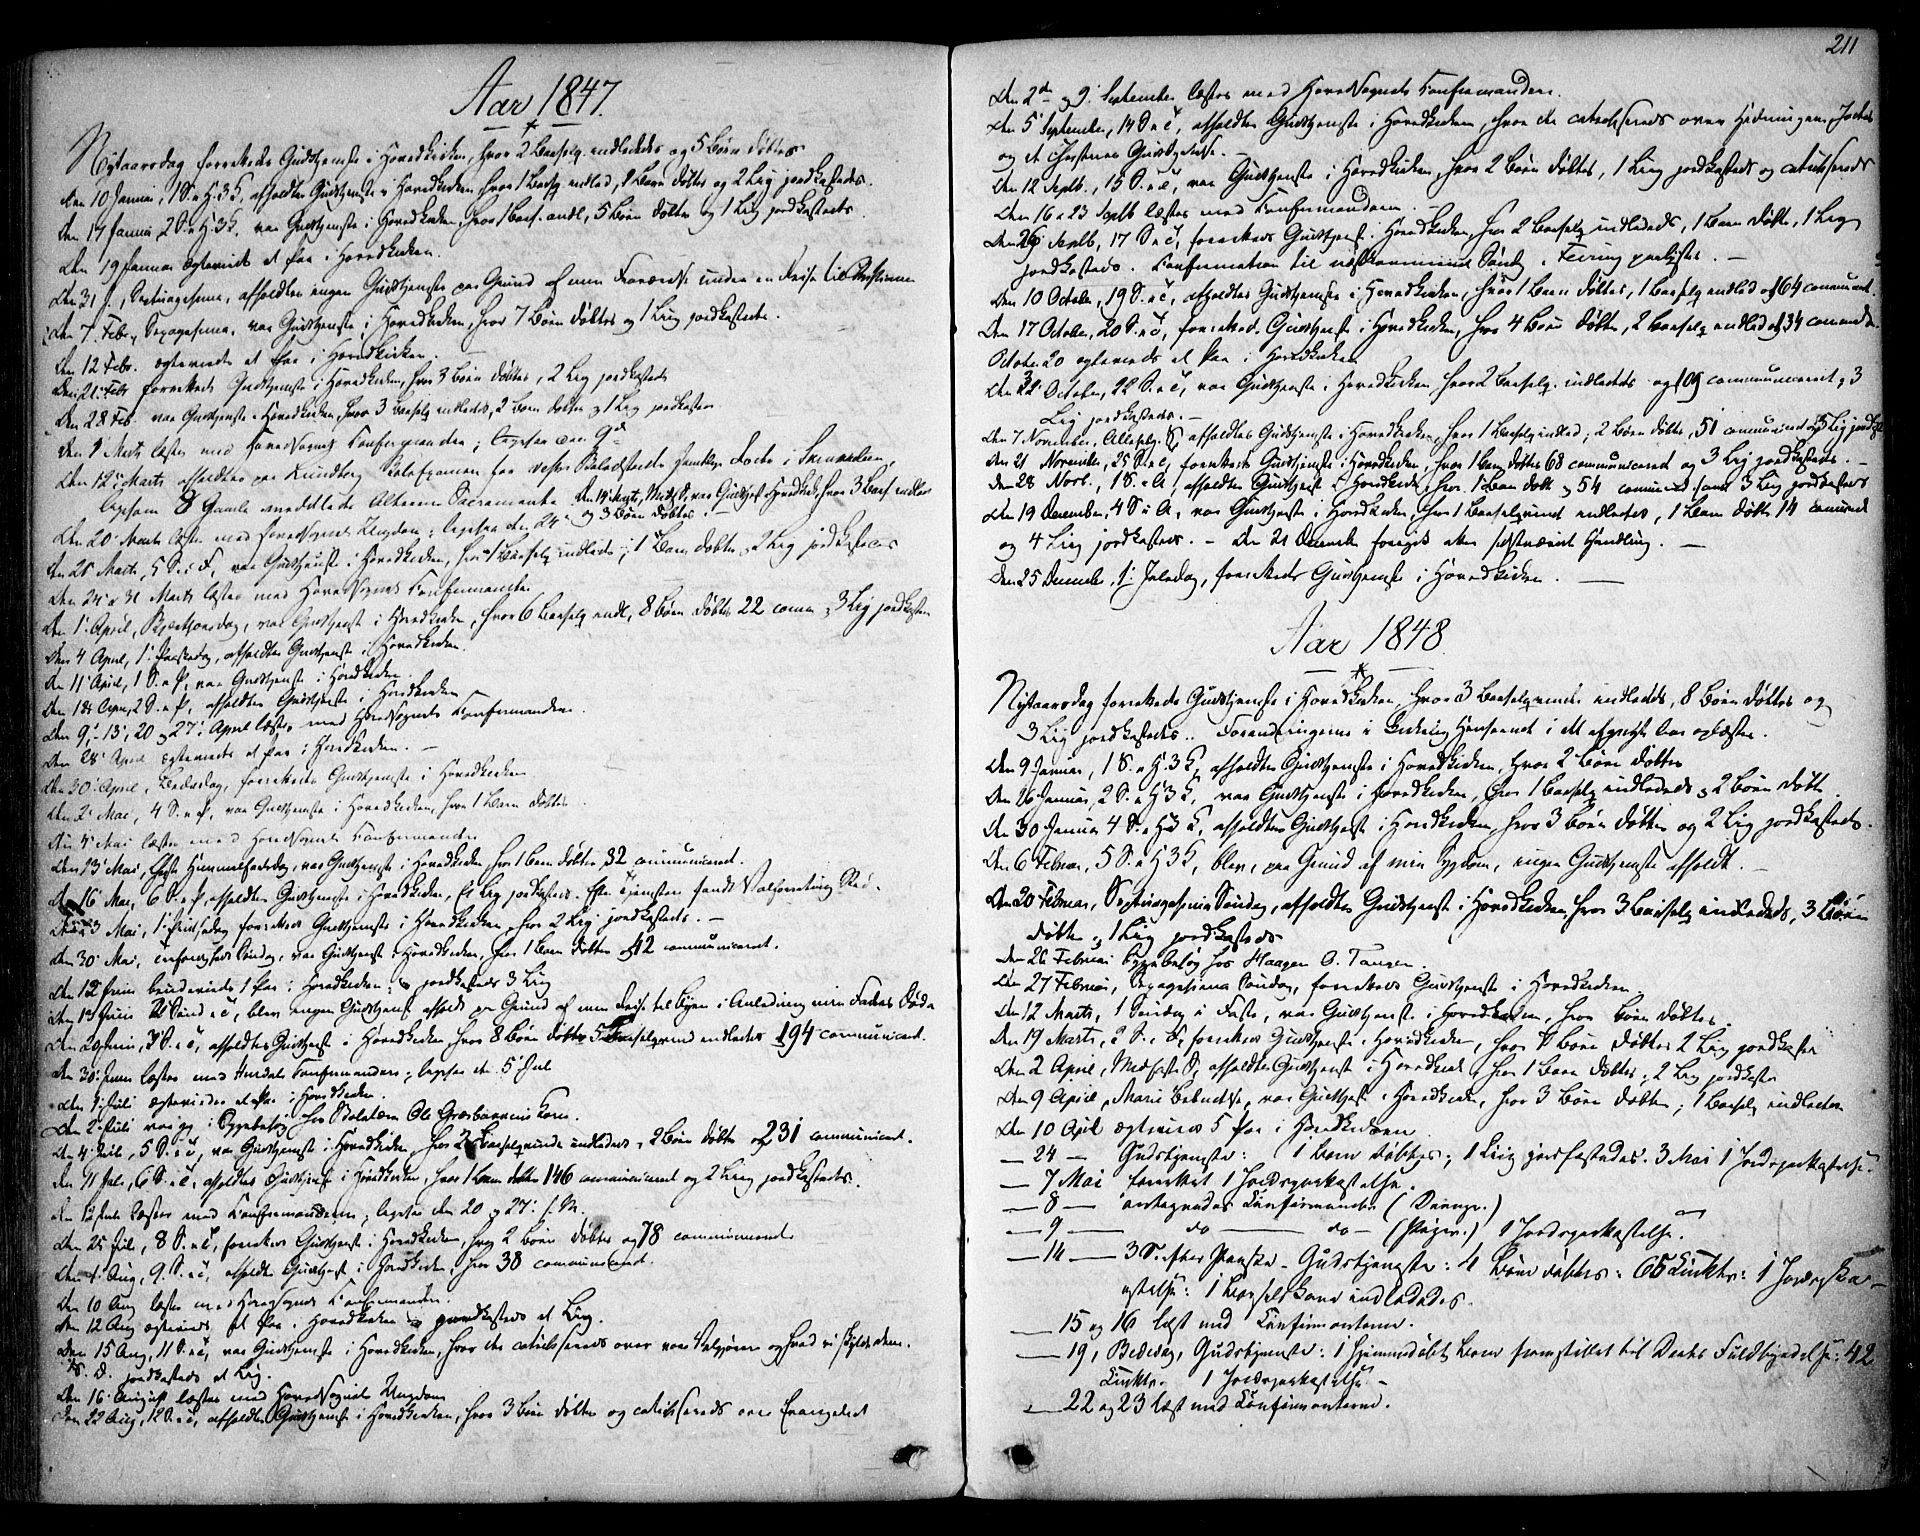 Aar 1847.
Nytaarsdag forrettedes Gudstjeneste i Hovedkirken, hvor 2 Barselq. indlededes og 5 Børn døbtes
den 10 Januar, 1 S. e. H. 3 K, afholdtes Gudstjeneste i Hovedkirken, hvor 1 Barselq indled, 1 Barn døbtes og 2 Lig jordkastedes.
den 17 Januar 2 S. e. H. 3 K. var Gudstjeneste i Hovedkirken, hvor 1 Bars. indl, 5 Børn døbtes og 1 Lig jordkastedes
den 19 Januar ægteviedes et Par i Hovedkirken.
Den 31 J., Septuagesima, afholdtes ingen Gudstjeneste paa Grund af min Fraværelse under en Reise til
den 7. Febr, Sexagesima, var Gudstjeneste i Hovedkirken, hvor 7 Børn døbtes og 1 Lig jordkastedes.
Den 12 Febr. ægteviedes et Par i Hovedkirken.
Den 21 Febr forrettedes Gudstjeneste i Hovedkirken, hvor 3 Børn døbtes, 2 Lig jordkastedes
Den 28 Feb. var Gudstjeneste i Hovedkirken, hvor 3 Barselq indledes, 2 Børn døbtes og 1 Lig jordkastedes
den Marts læstes med HovedSognets Confirmander; ligesaa den 9de
Den 12 Marts afholdtes paa Skoleexamen for
ligesom 8 Gamle meddeltes Alterens Sacramente. Den 14 Marts, Midf. S, var Gudstjenst i Hovedkirk, hvor 3 Bars indledes
og 3 Børn døbtes.
Den 20 Marts læstes med HovedSognets Ungdom; ligesaa den 24
den 21 Marts, 5 S. i F, var Gudstjeneste i Hovedkirken, hvor 1 Barselq indledes, 1 Barn døbtes og 2 Lig jordkastedes
Den 24 & 31 Marts læstes med HovedSognets Confirmander
den 1 April, Skjærtorsdag, var Gudstjenest i Hovedkirken, hvor 6 Barselq indl, 8 Børn døbtes 22 comm og 3 Lig jordkastedes
Den 4 April, 1 Paaskedag, afholdtes Gudstjeneste i Hovedkirken.
den 11 April, 1 S. e. P, var Gudstjeneste i Hovedkirken
den 18 April, 2 S. e. P, afholdtes Gudstjeneste i Hovedkirken
den 9, 13, 20 og 27 April læstes med HovedSognets Confirmander.
den 28 April ægteviedes et Par i Hovedkirken.
den 30 April, Bededag, forrettedes Gudstjeneste i Hovedkirken
den 2 Mai, 4 S. e. P, var Gudstjeneste i Hovedkirken, hvor 1 Barn døbtes
den 4 Mai læstes med HovedSognets Confirmander
Den 13 Mai, Christi Himmelfartsdag, var Gudstjeneste i Hovedkirken, hvor 1 Barn døbtes, 32 communiceret.
den 16 Mai, 6 S. e. P. afholdtes Gudstjeneste i Hovedkirken, Et Lig jordkastedes. Efter Tjenesten fandt Valforretning Sted.
Den 23 Mai, 1 Pintsedag forrettedes Gudstjeneste i Hovedkirken, hvor 2 Lig jordkastedes.
Den 30 Mai, Trefoldigheds Søndag, var Gudstjeneste i Hovedkirken, hvor 1 Barn døbtes og 42 communiceret.
Den 12 Juni 1 Par i Hovedkirken og jordkastedes 3 Lig
den 13 Juni 2 Sønd e. T, blev ingen Gudstjenest afholdt paa Grund af min Reise til Byen i Anledning min Faders Død
den 20 Juni, 3 S. e. T, afholdtes Gudstjeneste i Hovedkirken hvor 8 Børn døbtes 5 Barselqvind indledtes 194 communicert.
den 30 Juni læstes med Hurdals Confirmander; ligesaa d. 5 Juli
den 1 Juli ægteviedes et Par i Hovedkirken.
Den 2 Juli var jeg i Sygebesøg hos Ole
den 4 Juli, 5 S. e. T, var Gudstjeneste i Hovedkirken, hvor 2 Barselqvinder indledes, 2 Børn døbtes og 231 communicert.
den 11 Juli, 6 S. e. T, afholdtes Gudstjeneste i Hovedkirken, hvor 1 Barn døbtes 146 communiceret og 2 Lig jordkastedes.
den 12 Juli læstes med Confirmanderne; ligesaa den 20 og 27 s. M.
den 25 Juli, 8 S. e. T, forrettedes Gudstjeneste i Hovedkirken, hvor 2 Børn døbtes og 78 communiceret
den 1 Aug, 9. S. e. T, afholdtes Gudstjeneste i Hovedkirken, hvor 38 communiceret.
Den 10 Aug læstes med HovedSognets Confirmander.
Den 12 Aug ægteviedes et Par i Hovedkirken og jordkastedes et Lig.
den 15 Aug, 11 S. e. T, var Gudstjeneste i Hovedkirken, hvor der catechiseredes over vore Velgjørere og hvad vi skylde dem.
s. D. jordkastedes et Lig.
Den 16 August læstes med HovedSognets Ungdom
den 22 Aug, 12 S. e. T, afholdtes Gudstjeneste i Hovedkirken, hvor 3 Børn døbtes og catechiseredes over Evangeliet
211
Den 2de og 9 September læstes med HovedSognets Confirmander.
den 5 September, 14 S. e. T, afholdtes Gudstjeneste i Hovedkirken, hvor der catechiseredes over Hedningers, Jøders
og et Christnes Gudstjeneste.
den 12 Septb., 15 S. e. T, var Gudstjeneste i Hovedkirken, hvor 2 Børn døbtes, 1 Lig jordkastedes og catechiseredes
den 16 & 23 Septb læstes med Confirmanderne.
den 26 Septb, 17 S. e. T, forrettedes Gudstjenest i Hovedkirken, hvor 2 Barselq indledes, 1 Barn døbtes, 1 Lig
jordkastedes. Confirmation til næstkommende Søndag i Feiring
den 10 October, 19 S. e. T, afholdtes Gudstjeneste i Hovedkirken, hvor 1 Barn døbtes, 1 Barselq indled og 64 communicert
Den 17 October, 20 S. e. T, forretted. Gudstjeneste i Hovedkirken, hvor 4 Børn døbtes, 2 Barselq indled og 34 communicert.
October 20 ægteviedes et Par i Hovedkirken
Den 31 October, 22 S. e. T, var Gudstjeneste i Hovedkirken, hvor 2 Barselq. indledes og 109 communiceret og 3
Lig jordkastedes.
Den 7 November, Allehelg. S, afholdtes Gudstjeneste i Hovedkirken, hvor 1 Barselq indled, 2 Børn døbtes, 51 communiced og 5 Lig jordk.
den 21 November, 25 S. e. T, forrettedes Gudstjeneste i Hovedkirken, hvor 1 Barn døbtes 68 communiceret og 3 Lig jordkastedes.
den 28 Novb., 1 S. i A, afholdtes Gudstjenest i Hovedkirk, hvor 1 Barn døbt og 54 communiced samt 3 Lig jordkastedes
den 19 December, 4 S. i A, var Gudstjeneste i Hovedkirken, hvor 1 Barselqvind indledes, 1 Barn døbtes 14 communicd
og 4 Lig jordkastedes. - Den 21 Decemb foregik Handling.
den 25 December, 1 Juledag, forrettedes Gudstjeneste i Hovedkirken.
Aar 1848.
Nytaarsdag forrettedes Gudstjeneste i Hovedkirken, hvor 3 Barselqvinder indledes, 8 Børn døbtes og
3 Lig jordkastedes. Forandringerne i Henseende i det afvigte Aar oplæstes.
den 9 Januar, 1 S. e. H. 3 K, afholdtes Gudstjeneste i Hovedkirken, hvor 2 Børn døbtes
Den 16 Januar, 2 S. e. H 3 K, var Gudstjeneste i Hovedkirken, hvor 1 Barselq indledes og 2 Børn døbtes.
den 30 Januar 4 S. e H 3 K, afholdtes Gudstjeneste i Hovedkirken, hvor 3 Børn døbtes og 2 Lig jordkastedes.
den 6 Februar, 5 S. e H 3 K, blev, paa Grund af min Sygdom, ingen Gudstjeneste afholdt.
den 20 Februar, Septuagesima Søndag, afholdtes Gudstjeneste i Hovedkirken, hvor 3 Barselq indledes, 3 Børn
døbtes og 1 Lig jordkastedes
den 26 Februar Sygebesøg hos Haagen O. Tangen.
den 27 Februar, Sexagesima Søndag, forrettedes Gudstjeneste i Hovedkirken.
den 12 Marts, 1 Søndag i Faste, var Gudstjeneste i Hovedkirken, hvor Børn døbtes.
Den 19 Marts, 2 S. i F, forrettedes Gudstjeneste i Hovedkirken, hvor Børn døbtes 2 Lig jordkastedes
den 2 April, Midfaste S, afholdtes Gudstjeneste i Hovedkirk, hvor 1 Barn døbtes, 2 Lig jordkastedes
den 9 April, Marie Bebudelse, var Gudstjenest i Hovedkirken, hvor 3 Børn døbtes; 1 Barselq indledtes
den 10 April ægteviedes 5 Par i Hovedkirken.
— 24 — Gudstjeneste: 1 Barn døbtes; 1 Lig jordfæstedes. 3 Mai 1 Jordpaakastelse.
— 7 Mai forrettet 1 Jordspaakastelse.
— 8 — antegnedes Confirmander (Drenge.)
— 9 — do — do — (Piger.) 1 Jordspaakastelse.
— 14 — 3 S. efter Paaske - Gudstjeneste: 4 Børn døbtes: 65 : 1 Jordpaaka-
stelse: 1 Barselkone indledes.
— 15 og 16 læst med Confirmanterne.
— 19, Bededag, Gudstjeneste: 1 hjemmedøbt Barn fremstillet til Daabs Fuldbyrdelse: 42
1 Jordspaakastelse -
— 22 og 23 læst med Confirmanterne.